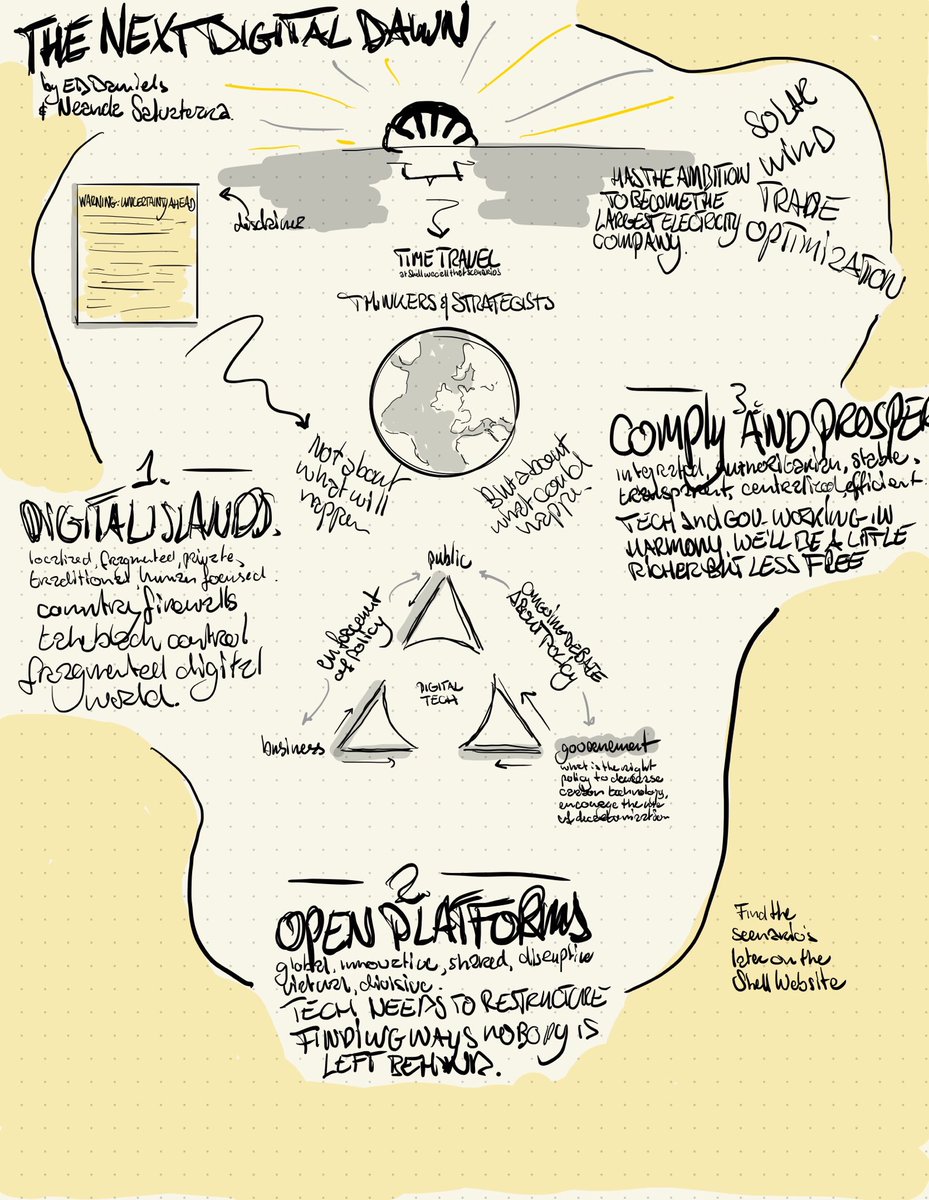 THE NEXT DIGITAL DAWN
by ED Daniels
& Neande Salvaterra
WARNING: UNCERTAINTY AHEAD
disclaimer
TIME TRAVEL
at Shell we call that scenarios
THINKERS & STRATEGISTS
HAS THE AMBITION
TO BECOME THE
LARGEST ELECTRICITY
COMPANY.
SOLAR
WIND
TRADE
OPTIMIZATION
Not about
what will
happen
But about
what could
happen.
1.
DIGITAL ISLANDS.
localized, fragmented, private,
traditional, human focused.
country firewalls
control
fragmented digital
world.
3
COMPLY AND PROSPER
integrated, authoritarian, stable,
transparent, centralized, efficient.
TECH and GOV. WORKING IN
HARMONY, WE'LL BE A LITTLE
RICHER BUT LESS FREE
public
enforcement
of policy
ONGOING DEBATE
ABOUT POLICY
DIGITAL
TECH
business
goovernement
what is the right
policy to decrease
carbon technology,
encourage the use
of decarbonization
2.
OPEN PLATFORMS
global, innovative, shared, disruptive
virtual, divisive.
TECH NEEDS TO RESTRUCTURE
FINDING WAYS NOBODY IS
LEFT BEHIND.
Find the
scenario's
later on the
Shell Website